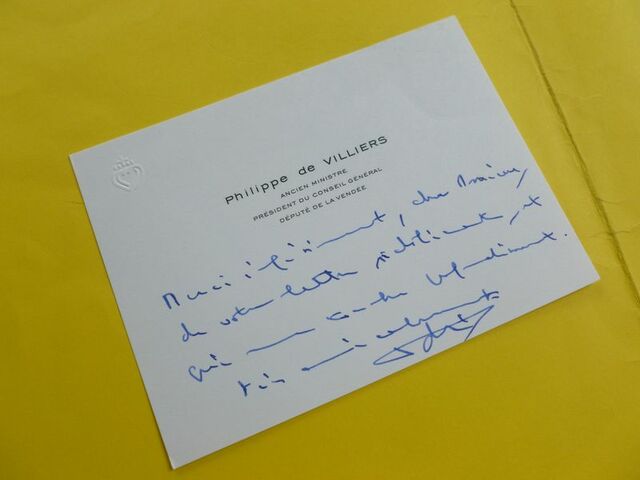 Philippe de VILLIERS
ANCIEN MINISTRE
PRÉSIDENT DU CONSEIL GÉNÉRAL
DÉPUTÉ DE LA VENDÉE
Merci infiniment, cher Monsieur,
de votre lettre et
qui me touche profondément.
Très amicalement